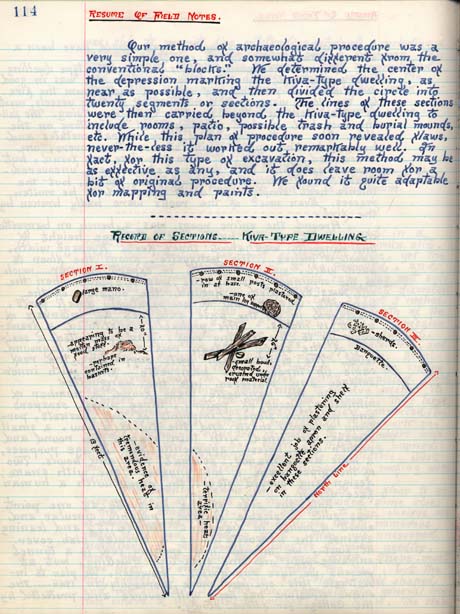 114
RESUME OF FIELD NOTES.
Our method of archaeological procedure was a
very simple one, and somewhat different from the
conventional "blocks." We determined the center of
the depression marking the Kiva-type dwelling, as
near as possible, and then divided the circle into
twenty segments or sections. The lines of these sections
were then carried beyond the Kiva-type dwelling to
include rooms, patio, possible trash and burial mounds,
etc. While this plan of procedure soon revealed flaws,
never-the-less it worked out remarkably well. In
fact, for this type of excavation, this method may be
as effective as any, and it does leave room for a
bit of original procedure. We found it quite adaptable
for mapping and paints.
RECORD OF SECTIONS---- KIVA-TYPE DWELLING.
SECTION I.
-large mano.
-appearing to be a
molten mass of
food stuff.
-perhaps
contained in
baskets.
-evidence of
tremendous heat in
this area.
13 feet
SECTION II.
-row of small posts plastered
in at base.
-one of
main
-small bowl
under
roof material.
-terrific heat
area-
SECTION III.
-sherds.
Banquette.
-excellent job of plastering
on banquette apron and shelf
in these sections.
North Line.